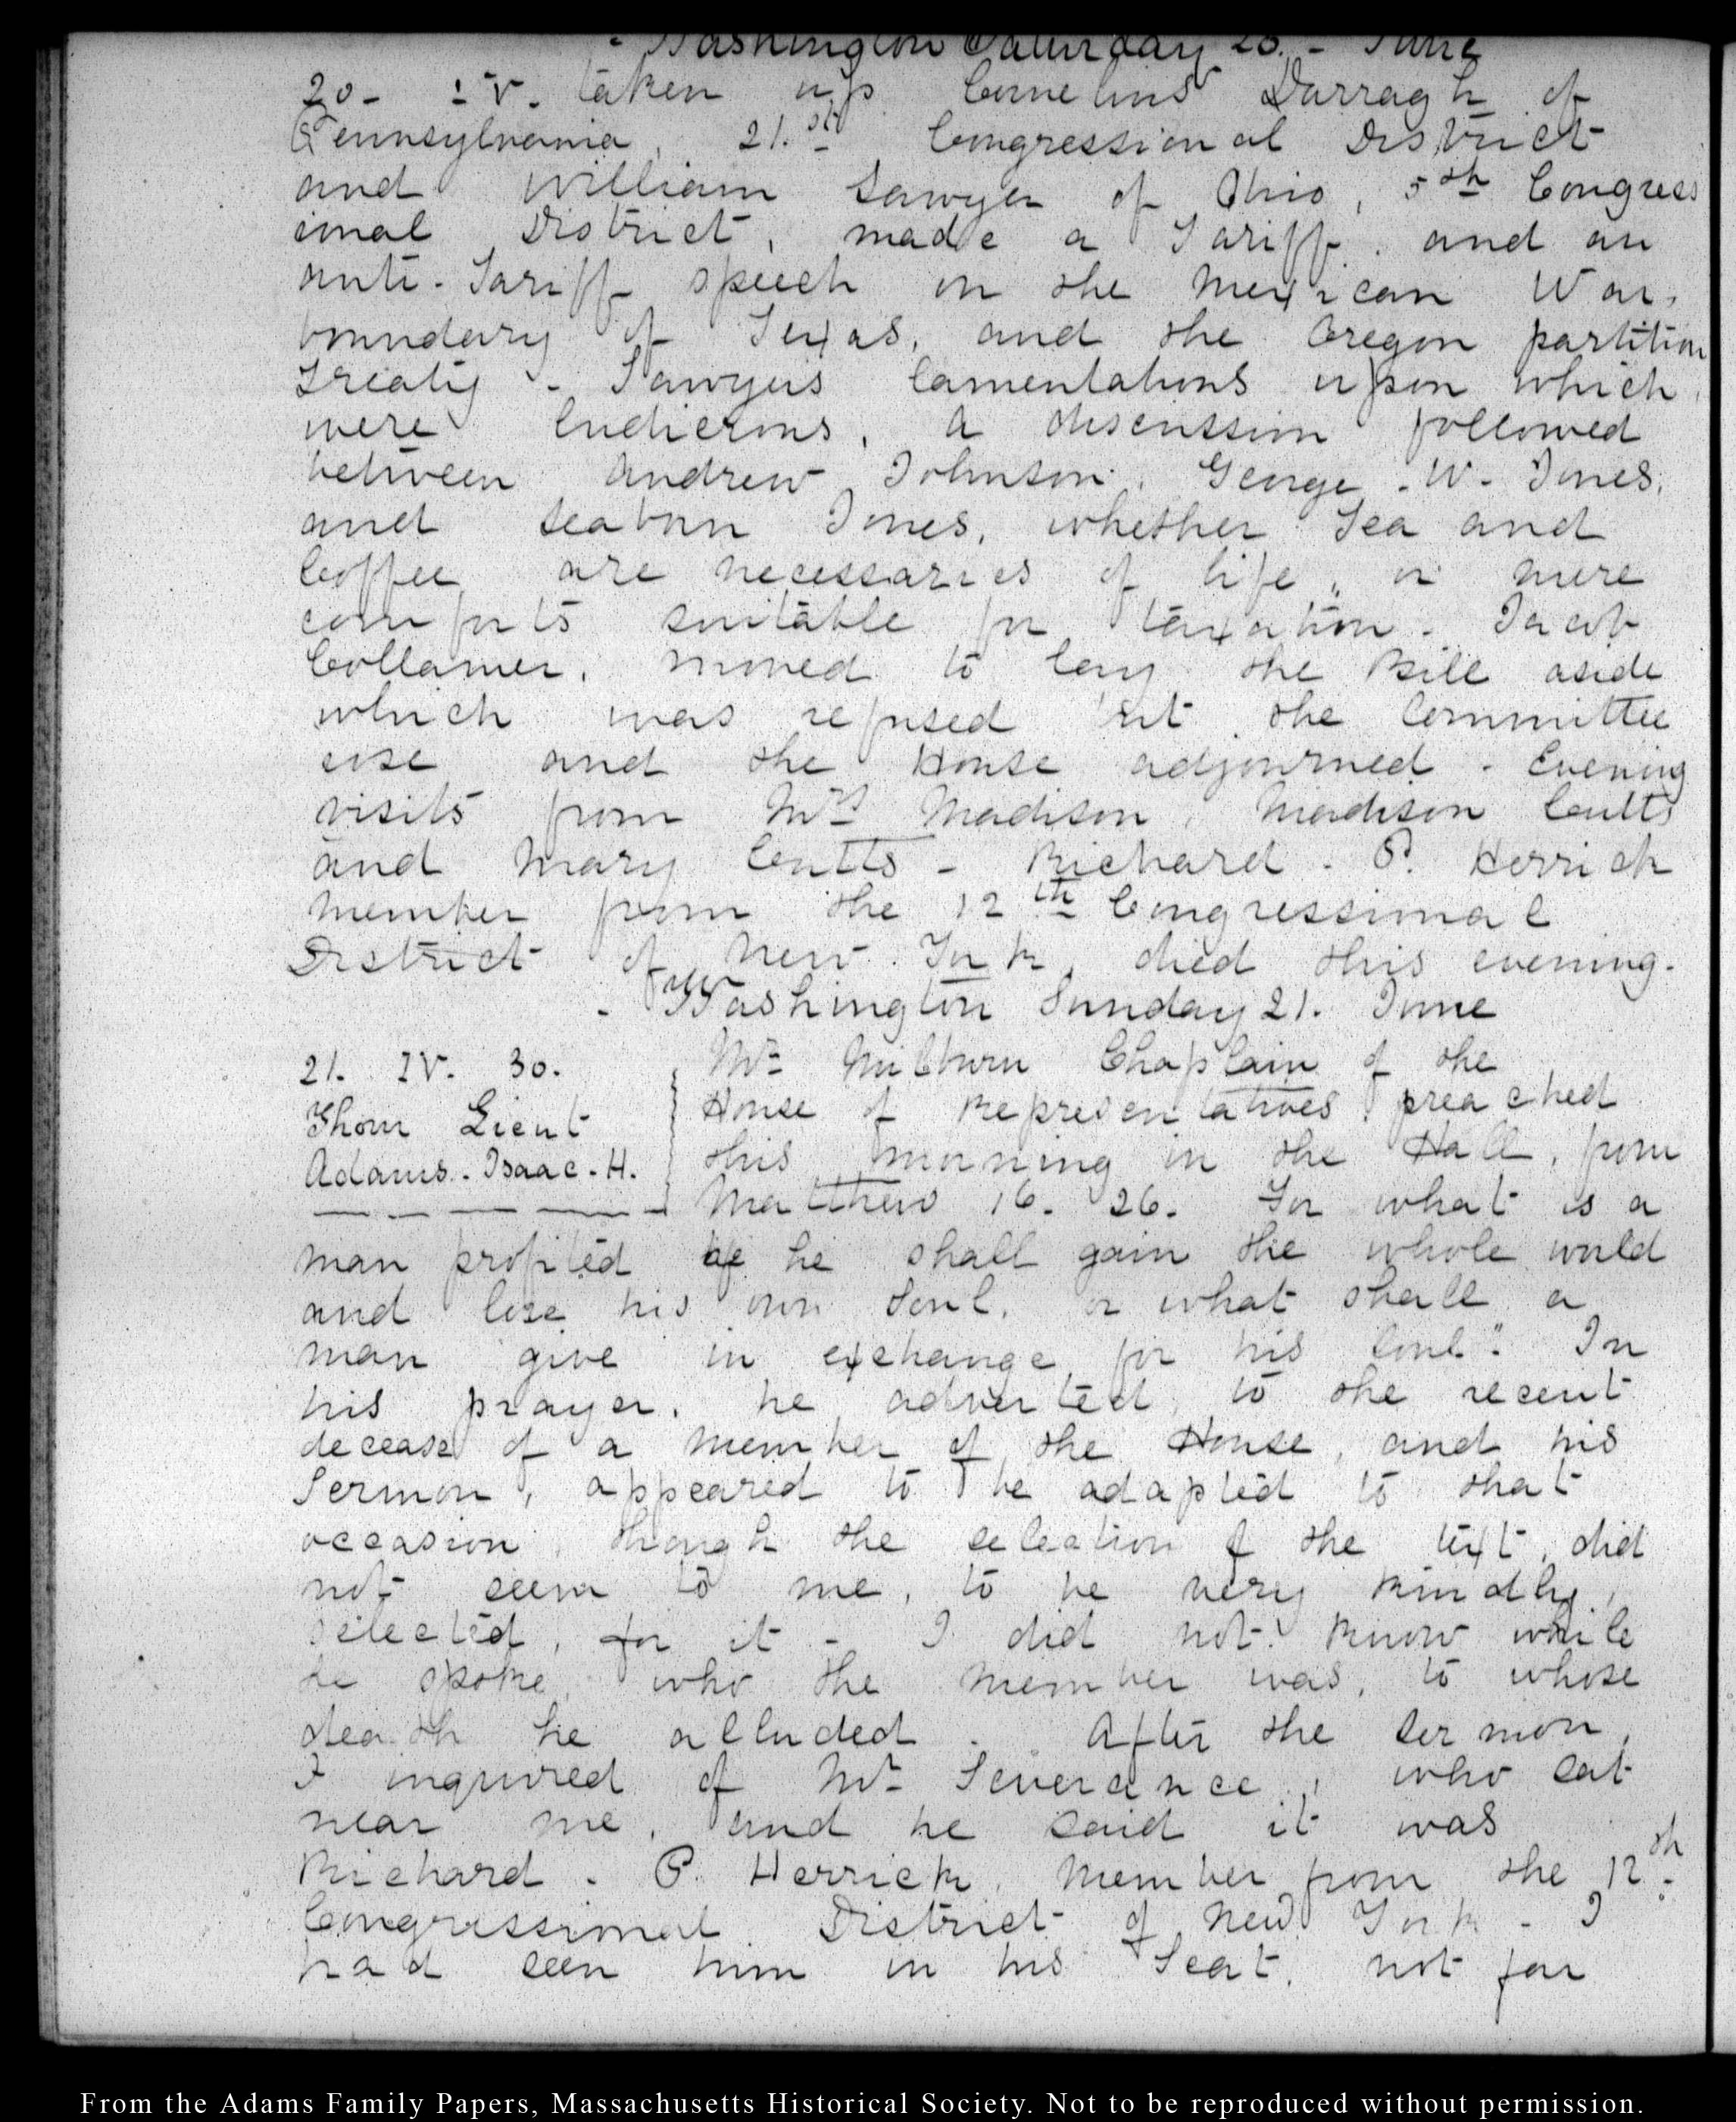 - Washington Saturday 20. - June
20- IV. taken up Cornelius Darragh of
Pennsylvania, 21.st Congressional District
and William Sawyer of Ohio, 5th Congress
ional District, made a Tariff. and an
anti-Tariff speech on the Mexican War,
boundary of Texas, and the Oregon partition
Treaty - Sawyers lamentations upon which,
were ludicrous. A discussion followed
between Andrew Johnson. George. W. Jones.
and Seaborn Jones, whether Tea and
Coffee are necessaries of life, or mere
comforts suitable for taxation. Jacob
Collamer, moved to lay the Bill aside
which was refused but the Committee
rose and the House adjourned. Evening
visits from Mrs Madison, Madison Cutts
and Mary Cutts - Richard. P. Herrick
member from the 12th Congressional
District of New York, died this evening.
- Washington Sunday 21. June
21. IV. 30.
Thom Lieut
Adams. Isaac. H.
Mr Milburn Chaplain of the
House of Representatives preached
this morning in the Hall, from
Matthew 16. 26. For what is a
man profited if he shall gain the whole world
and lose his own Soul, or what shall a
man give in exchange for his soul". In
his prayer, he adverted to the recent
decease of a member of the House, and his
Sermon, appeared to be adapted to that
occasion, though the selection of the text, did
not seem to me, to be very kindly,
selected, for it - I did not know while
he spoke, who the member was, to whose
death he alluded. After the sermon,
I inquired of Mr Severance, who sat
near me, and he said it was
Richard. P. Herrick, member from the 12th
Congressional District of New York - I
had seen him in his Seat, not far
From the Adams Family Papers, Massachusetts Historical Society. Not to be reproduced without permission.